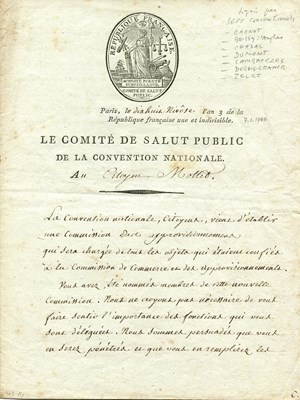 signé par
sept conventionnels
- CARNOT
- Boissy d'Anglas
- CHAZAL
- DUMONT
- CAMBACERES
- PELET
RÉPUBLIQUE FRANÇAISE
COMITÉ DE SALUT
PUBLIC.
Paris, le dix huit Nivôse l'an 3 de la
République française une et indivisible.
LE COMITÉ DE SALUT PUBLIC
DE LA CONVENTION NATIONALE.
Au Citoyen
La Convention nationale, Citoyen, vient d'établir
une Commission Des approvisionnemens
qui sera chargée de tous les objets qui étaient confiés
à la Commission de Commerce et des Approvisionnements.
Vous avez été nommés membres de cette nouvelle
Commission. Nous ne croyons pas nécessaire de vous
faire sentir l'importance des fonctions qui vous
sont déléguées. Nous sommes persuadés que vous
en serez pénétrés et que vous en remplirez les